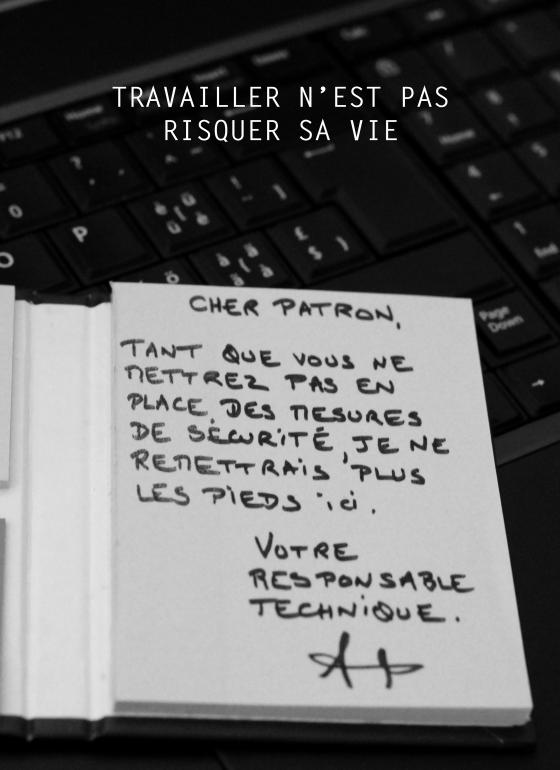 TRAVAILLER N'EST PAS
RISQUER SA VIE
CHER PATRON,
TANT QUE VOUS NE
METTREZ PAS EN
PLACE DES MESURES
DE SÉCURITÉ, JE NE
REMETTRAIS PLUS
LES PIEDS ici.
VOTRE
RESPONSABLE
TECHNIQUE.
Home
P
Page
Down
End